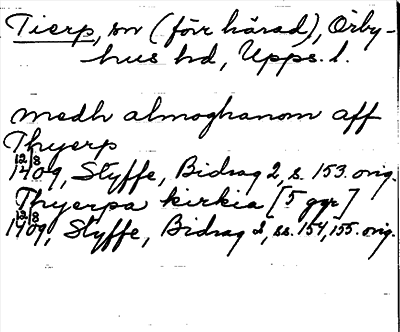 Tierp, sn (förr härad), Örby-
hus hd, Upps. l.
medh almoghanom aff
Thyerp
12/8 1409, Styffe, Bidrag 2, s. 153. orig.
Thyerpa kirkia [5 ggr]
12/8 1409, Styffe, Bidrag 2, ss. 154, 155. orig.